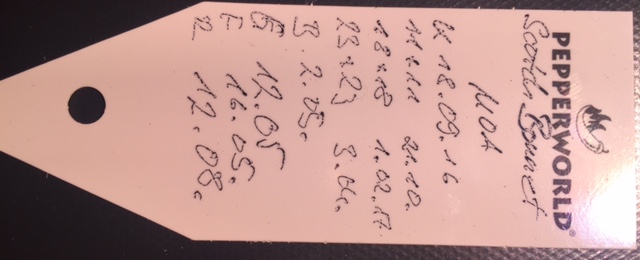 PEPPERWORLD®
Scotch Bonnet
MOA
18.09.16
11x11 21.10.
18x18 1.02.17
23x23 3.04.
B 2.05.
B 12.05
F 16.05.
R 12.08.